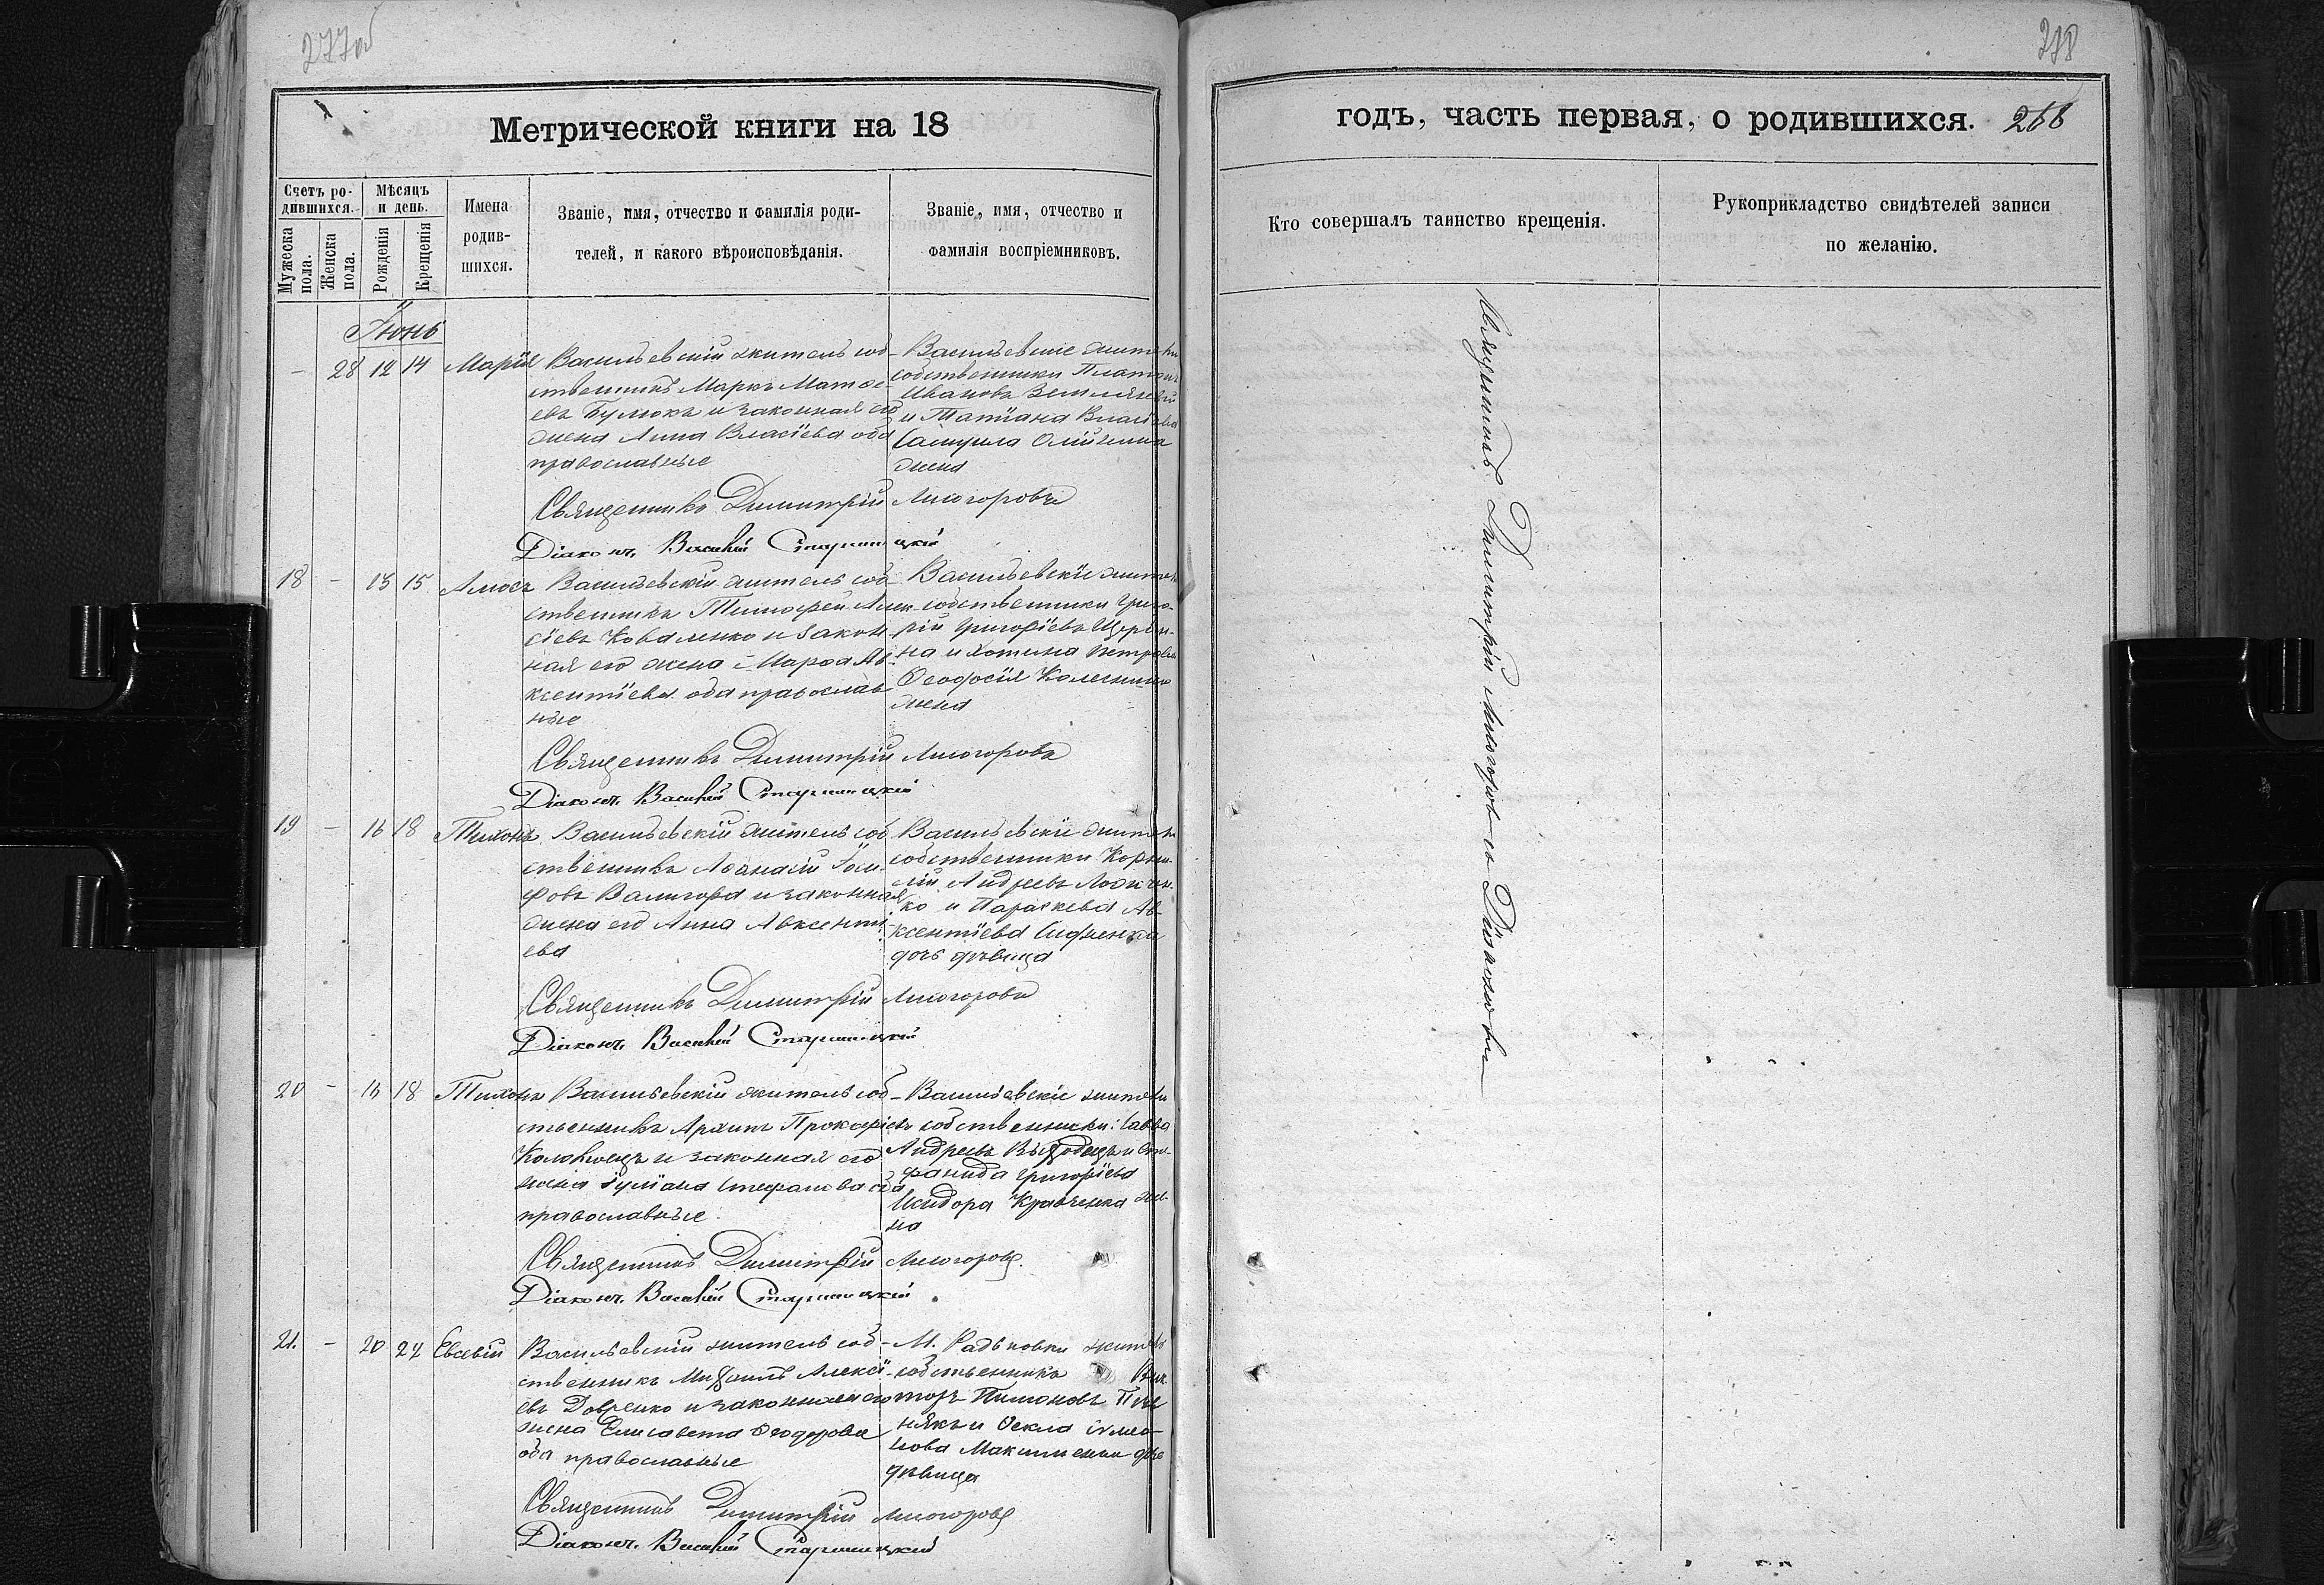 277об
Метрической книги на 18
Счетъ ро-
дившихся.
Мѣсяцъ
и день.
Мужеска
пола.
Женска
пола.
Рожденія
Крещенія
Имена
родив-
шихся.
Званіе, имя, отчество и фамилія роди-
телей, и какого вѣроисповѣданія.
Званіе, имя, отчество и
фамилія воспріемниковъ.
Іюнь
- 28 12 14 Марія
Васильевскій житель соб-
ственникъ Маркъ Матѳе-
евъ Булюкъ и законная его
жена Анна Власіева оба
православные
Васильевскіе жители
собственники Платонъ
Ивановъ
и Татіана Власіева
Самуила
жена
Священникъ Димитрій Лисогоровъ
Діаконъ Василій Старишцкій
18 - 13 15 Амосъ
Васильевскій житель соб-
ственникъ Тимофей Алек-
сіевъ Коваленко и закон-
ная его жена Марфа Ав-
ксентіева оба православ
ные
Васильевскіе жители
собственники Григо-
рій Григоріевъ
на и Хотина Петрова
Ѳеодосія
жена
Священникъ Димитрій Лисогоровъ
Діаконъ Василій Старишцкій
19 - 16 18 Тихонъ
Васильевскій житель соб
ственникъ Аѳанасій Іоси-
фовъ Валигора и законная
жена его Анна Авксенті-
ева
Васильевскіе жители
собственники Корни-
лій Андреевъ
ко и Параскева Ав-
ксентіева
дочь дѣвица
Священникъ Димитрій Лисогоровъ
Діаконъ Василій Старишцкій
20 - 16 18 Тихонъ
Васильевскій житель соб
ственникъ Архипъ Прокофіевъ
и законная его
жена Іуліана Стефанова оба
православные
Васильевскіе жители
собственники: Савва
Андреевъ
Григоріева
Исидора Кравченка же-
на
Священникъ Димитрій Лисогоровъ
Діаконъ Василій Старишцкій
21. - 20 24 Евсевій
Васильевскій житель соб-
ственникъ Михаилъ Алексі-
евъ Довренко и законная его
жена Елисавета Ѳеодорова
оба православные
М. Радьковки житель
собственникъ Вик
торъ Пимоновъ
и Ѳекла Симео-
нова
дѣвица
Священникъ Димитрій Лисогоровъ
Діаконъ Василій Старишцкій
278
годъ, часть первая, о родившихся. 266
Кто совершалъ таинство крещенія.
Рукоприкладство свидѣтелей записи
по желанію.
Священникъ Димитрій Лисогоровъ съ Діакономъ